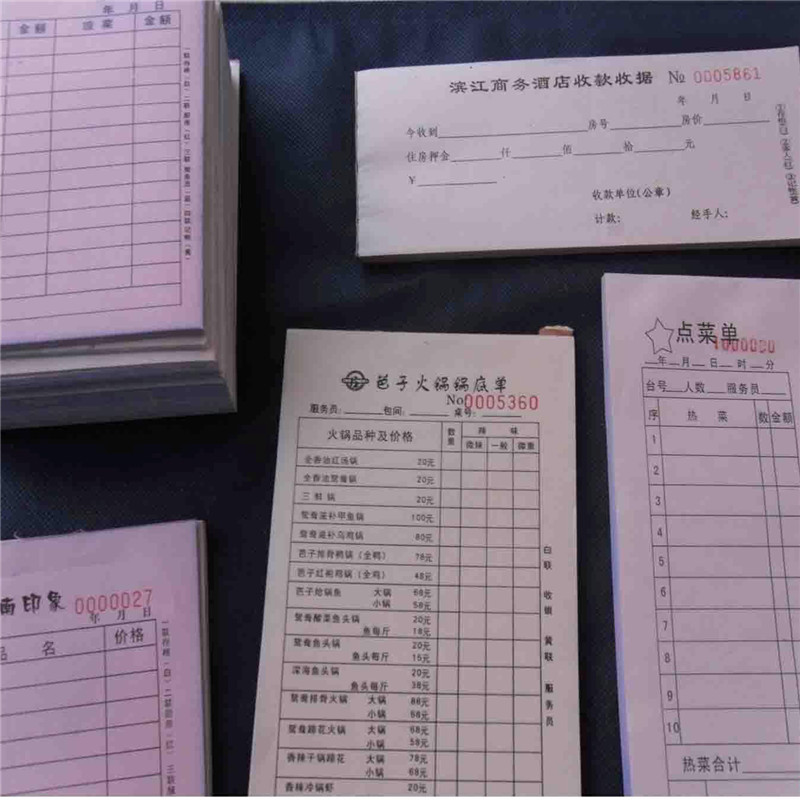 年 月 日
金额 或菜 金额
滨江商务酒店收款收据 № 0005861
年 月 日
今收到 房号 房价
住房押金 仟 佰 拾 元
¥
收款单位(公章)
计款: 经手人:
芭子火锅锅底单
No0005360
服务员: 包间: 桌号:
火锅品种及价格 数量 辣 味
微辣 一般 微重
全香油红汤锅 20元
全香油鸳鸯锅 20元
三鲜锅 20元
鸳鸯滋补甲鱼锅 100元
鸳鸯滋补乌鸡锅 80元
芭子排骨鸭锅(全鸭) 78元
芭子红袍鸡锅(全鸡) 48元
芭子跄锅鱼 大锅 68元
小锅 58元
鸳鸯酸菜鱼头锅 20元
鱼每斤 18元
鸳鸯鱼头锅 20元
鱼头每斤 15元
深海鱼头锅 20元
鱼头每斤 38元
鸳鸯排骨火锅 大锅 88元
小锅 68元
鸳鸯蹄花火锅 大锅 68元
小锅 58元
香辣子锅蹄花 大锅 78元
小锅 68元
香辣冷锅虾 20元
白联 收银 黄联 服务员
点菜单
年 月 日 时 分
台号 人数 服务员
序 热 菜 数 金额
1
2
3
4
5
6
7
8
9
10
热菜合计
南印象 0000027
年 月 日
品 名 价格